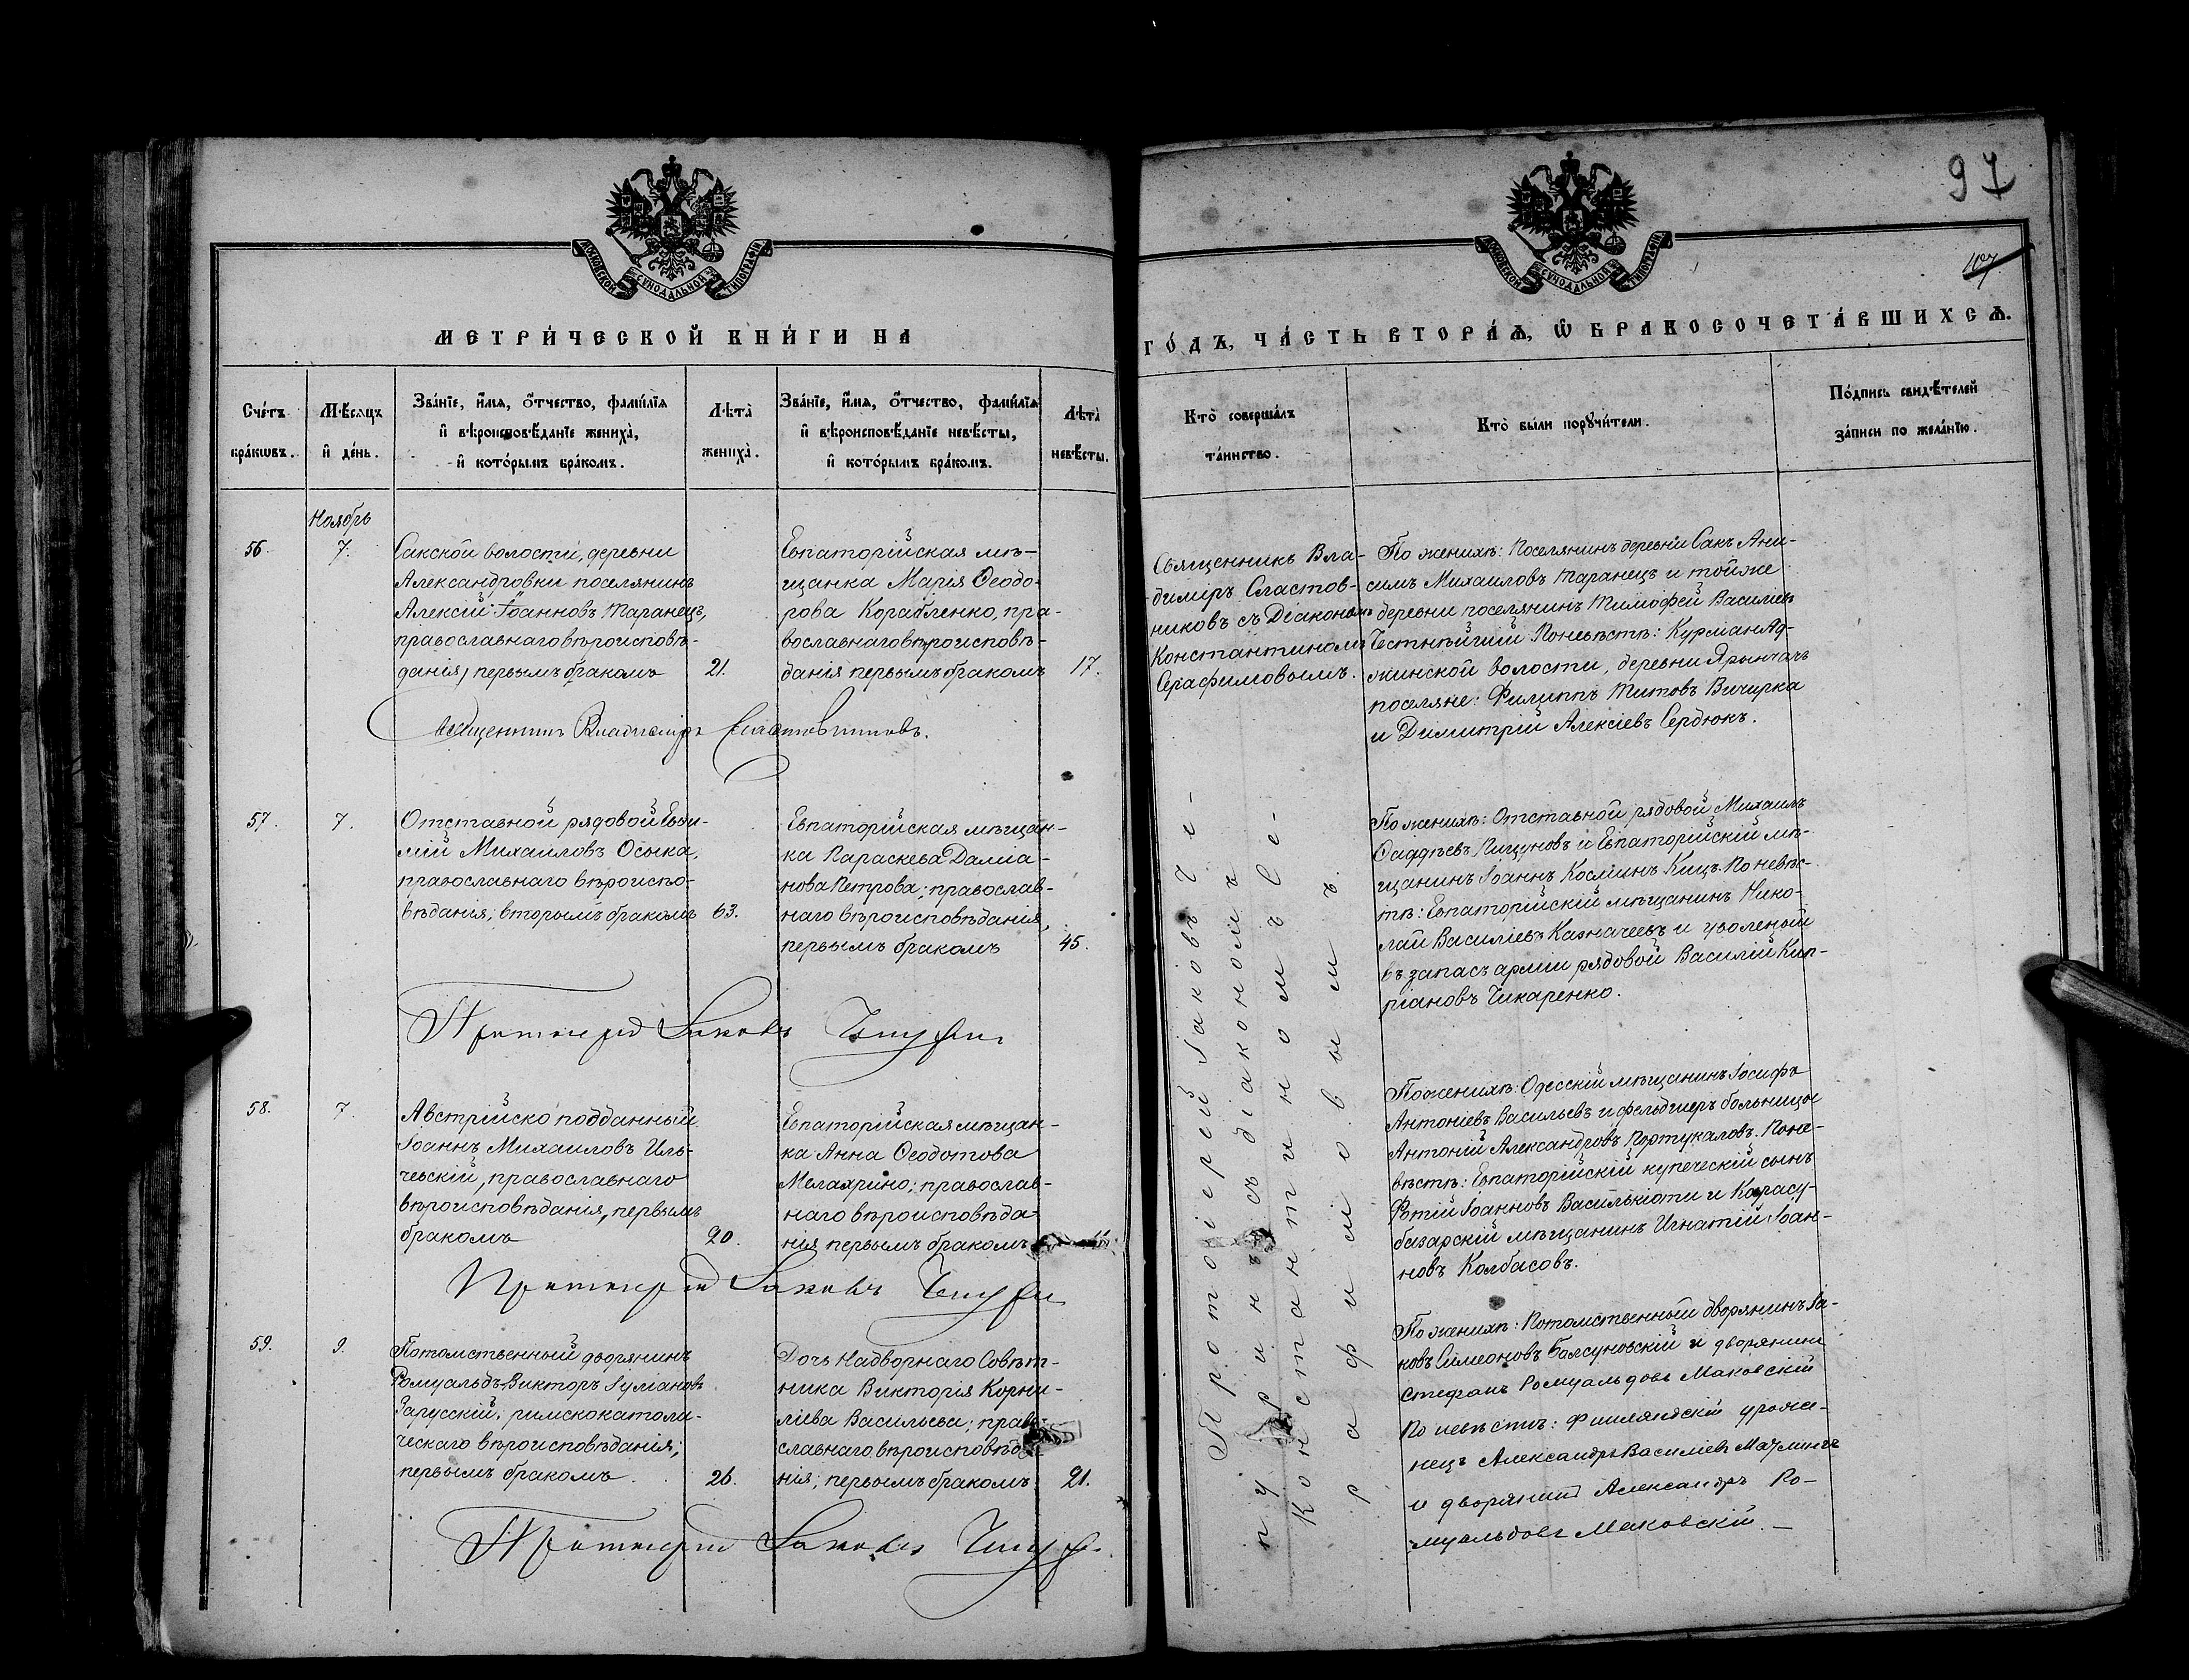 97
107
МОСКОВСКОЙ СѴНОДАЛЬНОЙ ТИПОГРАФІИ
МОСКОВСКОЙ СѴНОДАЛЬНОЙ ТИПОГРАФІИ
МЕТРИ́ЧЕСКОЙ КНИ́ГИ НА
ГО́ДЪ, ЧА́СТЬ ВТОРА́Ѧ, Ѽ БРАКОСОЧЕТА́ВШИХСѦ.
Сче́тъ
бра́кѡвъ.
М҃ѣсяцъ
и҆ де́нь.
Зва́нїе, и҆́мя, о҆́тчество, фами́лїя
и҆ вѣроисповѣ́данїе жениха̀,
и҆ кото́рымъ бра́комъ.
Лѣта̀
жениха̀.
Зва́нїе, и҆́мя, о҆́тчество, фами́лїя
и҆ вѣроисповѣ́данїе невѣ́сты,
и҆ кото́рымъ бра́комъ.
Лѣта̀
невѣ́сты.
Кто̀ соверша́лъ
та́инство.
Кто̀ бы́ли порꙋчи́тели.
По́дпись свидѣ́телей
за́писи по жела́нїю.
Ноябрь
56.
7.
Сакской волости, деревни
Александровки поселянинъ
Алексій Іоанновъ Таранецъ,
православнаго вѣроисповѣ-
данія, первымъ бракомъ
21.
Евпаторійская мѣ-
щанка Марія Ѳеодо-
рова Корабленко, пра-
вославнаго вѣроисповѣ-
данія первымъ бракомъ
17.
Священникъ Вла-
диміръ Сластов-
никовъ съ Діакономъ
Константиномъ
Серафимовымъ.
По женихѣ: Поселянинъ деревни Сакъ Ани-
симъ Михаиловъ Таранецъ и тойже
деревни поселянинъ Тимофей Василіевъ
Честнѣйшій По невѣстѣ: Курман Ад-
жинской волости, деревни Ярынчакъ
поселяне: Филиппъ Титовъ Вичирка
и Димитрій Алексіевъ Сердюкъ.
Священникъ Владиміръ Сластовниковъ.
57.
7.
Отставной рядовой Евѳи-
мій Михаиловъ Осыка,
православнаго вѣроиспо-
вѣданія; вторымъ бракомъ
63.
Евпаторійская мѣщан-
ка Параскева Даміа-
нова Петрова; православ-
наго вѣроисповѣданія,
первымъ бракомъ
45.
По женихѣ: Отставной рядовой Михаилъ
Ѳаддѣевъ Пищуновъ и Евпаторійскій мѣ-
щанинъ Іоаннъ Косминъ Кицъ. По невѣс-
тѣ: Евпаторійскій мѣщанинъ Нико-
лай Василіевъ Казначеевъ и уволеный
въ запасъ арміи рядовой Василій Кип-
ріановъ Чикаренко.
Протоіерей Іаковъ Чепу
58.
7.
Австрійско подданный
Іоаннъ Михаиловъ Иль-
чевскій, православнаго
вѣроисповѣданія, первымъ
бракомъ
20.
Евпаторійская мѣщан-
ка Анна Ѳеодотова
Мелахрино; православ-
наго вѣроисповѣда-
нія первымъ бракомъ
По женихѣ: Одесскій мѣщанинъ Іосифъ
Антоніевъ Васильевъ и фельдшеръ больницы
Антоній Александровъ Портукаловъ. По не-
вѣстѣ: Евпаторійскій купеческій сынъ
Фотій Іоанновъ Василькіоти и Карасу-
базарскій мѣщанинъ Игнатій Іоан-
новъ Колбасовъ.
Протоіерей Іаковъ
59.
9.
Потомственный дворянинъ
Ромуальдъ-Викторъ Іуліановъ
Зарусскій; римскокатоли-
ческаго вѣроисповѣданія;
первымъ бракомъ
26.
Дочь Надворнаго Совѣт-
ника Викторія Корни-
ліева Васильева; право-
славнаго вѣроисповѣда-
нія; первымъ бракомъ
21.
По женихѣ: Потомственный дворянинъ Іа-
ковъ Симеоновъ Балсуновскій и дворянинъ
Стефанъ Ромуальдовъ Маковскій
По невѣстѣ: Финляндскій уроже-
нецъ Александръ Василіевъ
и дворянинъ Александръ Ро-
муальдовъ Маковскій. —
Протоіерей Іаковъ
Протоіерей Іаковъ Че-
пуринъ съ діакономъ
Константиномъ Се-
рафимовымъ.